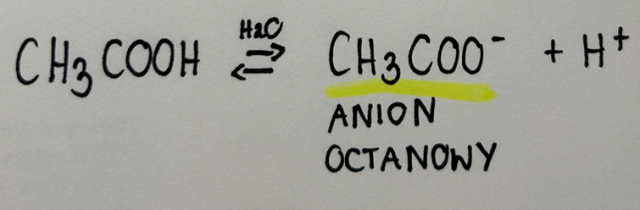 CH3COOH ⇌ H2O CH3COO⁻ + H⁺
ANION
OCTANOWY